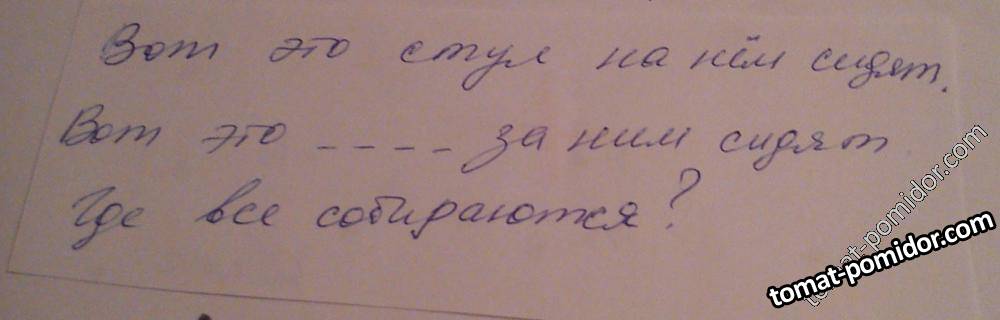 Вот это стул на нём сидят.
Вот это ---- за ним сидят
Где все собираются?
tomat-pomidor.com
tomat-pomidor.com